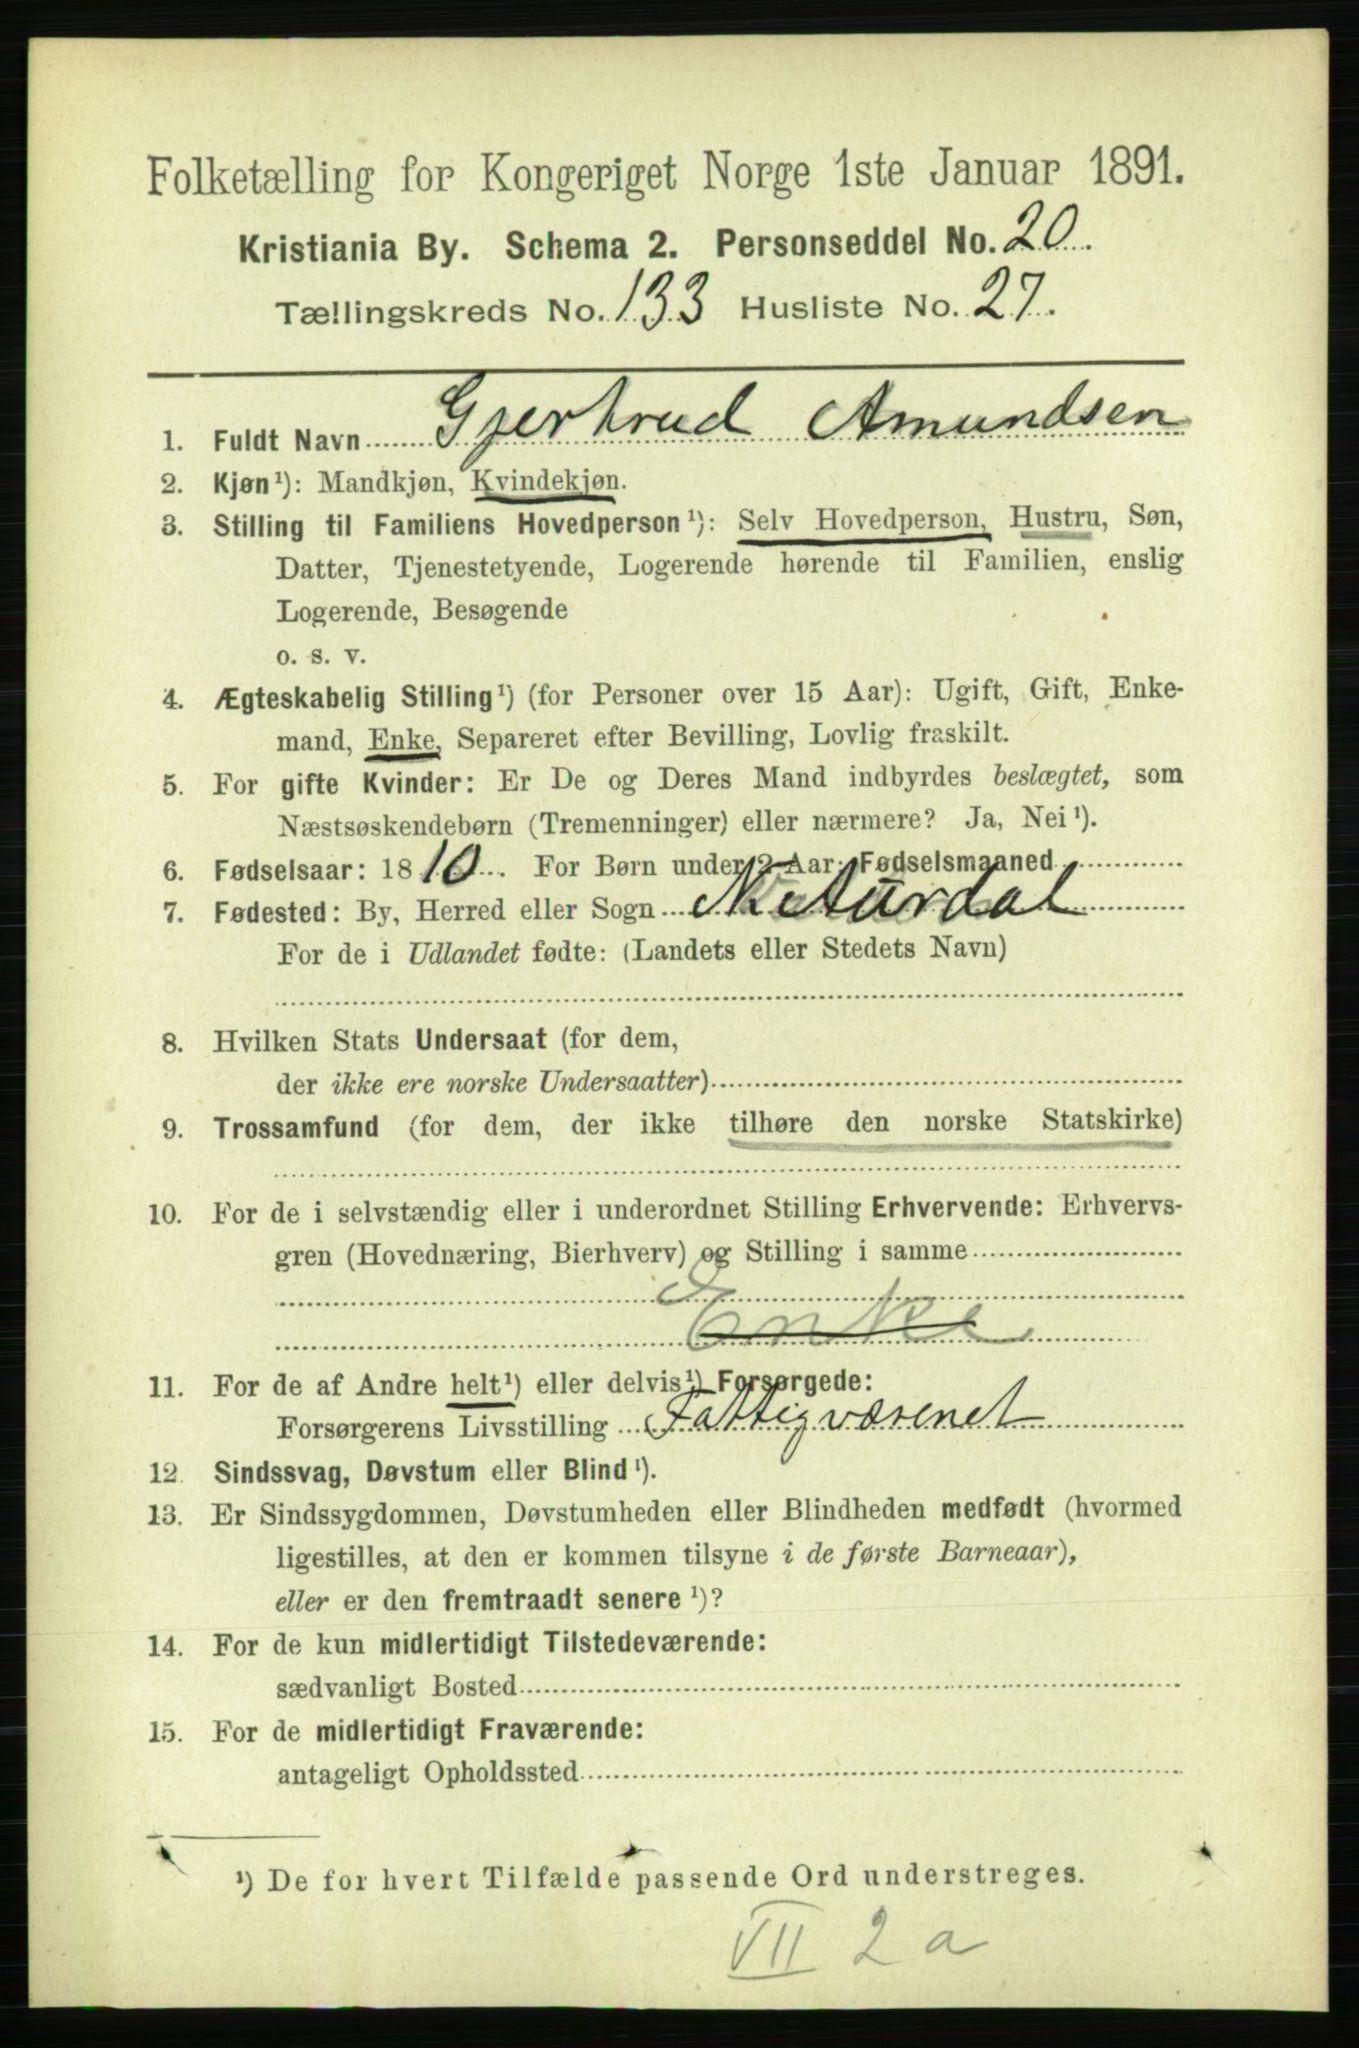 Folketælling for Kongeriget Norge 1ste Januar 1891.
Kristiania By. Schema 2. Personseddel No. 20.
Tællingskreds No. 133 Husliste No. 27.
1. Fuldt Navn Gjertrud Amundsen
2. Kjøn¹): Mandkjøn, Kvindekjøn.
3. Stilling til Familiens Hovedperson¹): Selv Hovedperson, Hustru, Søn,
Datter, Tjenestetyende, Logerende hørende til Familien, enslig
Logerende, Besøgende
o. s. v.
4. Ægteskabelig Stilling¹) (for Personer over 15 Aar): Ugift, Gift, Enke-
mand, Enke, Separeret efter Bevilling, Lovlig fraskilt.
5. For gifte Kvinder: Er De og Deres Mand indbyrdes beslægtet, som
Næstsøskendebørn (Tremenninger) eller nærmere? Ja, Nei¹).
6. Fødselsaar: 1810. For Børn under 2 Aar: Fødselsmaaned
7. Fødested: By, Herred eller Sogn N. Aurdal
For de i Udlandet fødte: (Landets eller Stedets Navn)
8. Hvilken Stats Undersaat (for dem,
der ikke ere norske Undersaatter)
9. Trossamfund (for dem, der ikke tilhøre den norske Statskirke)
10. For de i selvstændig eller i underordnet Stilling Erhvervende: Erhvervs-
gren (Hovednæring, Bierhverv) og Stilling i samme
Enke
11. For de af Andre helt¹) eller delvis¹) Forsørgede:
Forsørgerens Livsstilling Fattigvæsenet
12. Sindssvag, Døvstum eller Blind¹).
13. Er Sindssygdommen, Døvstumheden eller Blindheden medfødt (hvormed
ligestilles, at den er kommen tilsyne i de første Barneaar),
eller er den fremtraadt senere¹)?
14. For de kun midlertidigt Tilstedeværende:
sædvanligt Bosted
15. For de midlertidigt Fraværende:
antageligt Opholdssted
¹) De for hvert Tilfælde passende Ord understreges.
VII 2 a